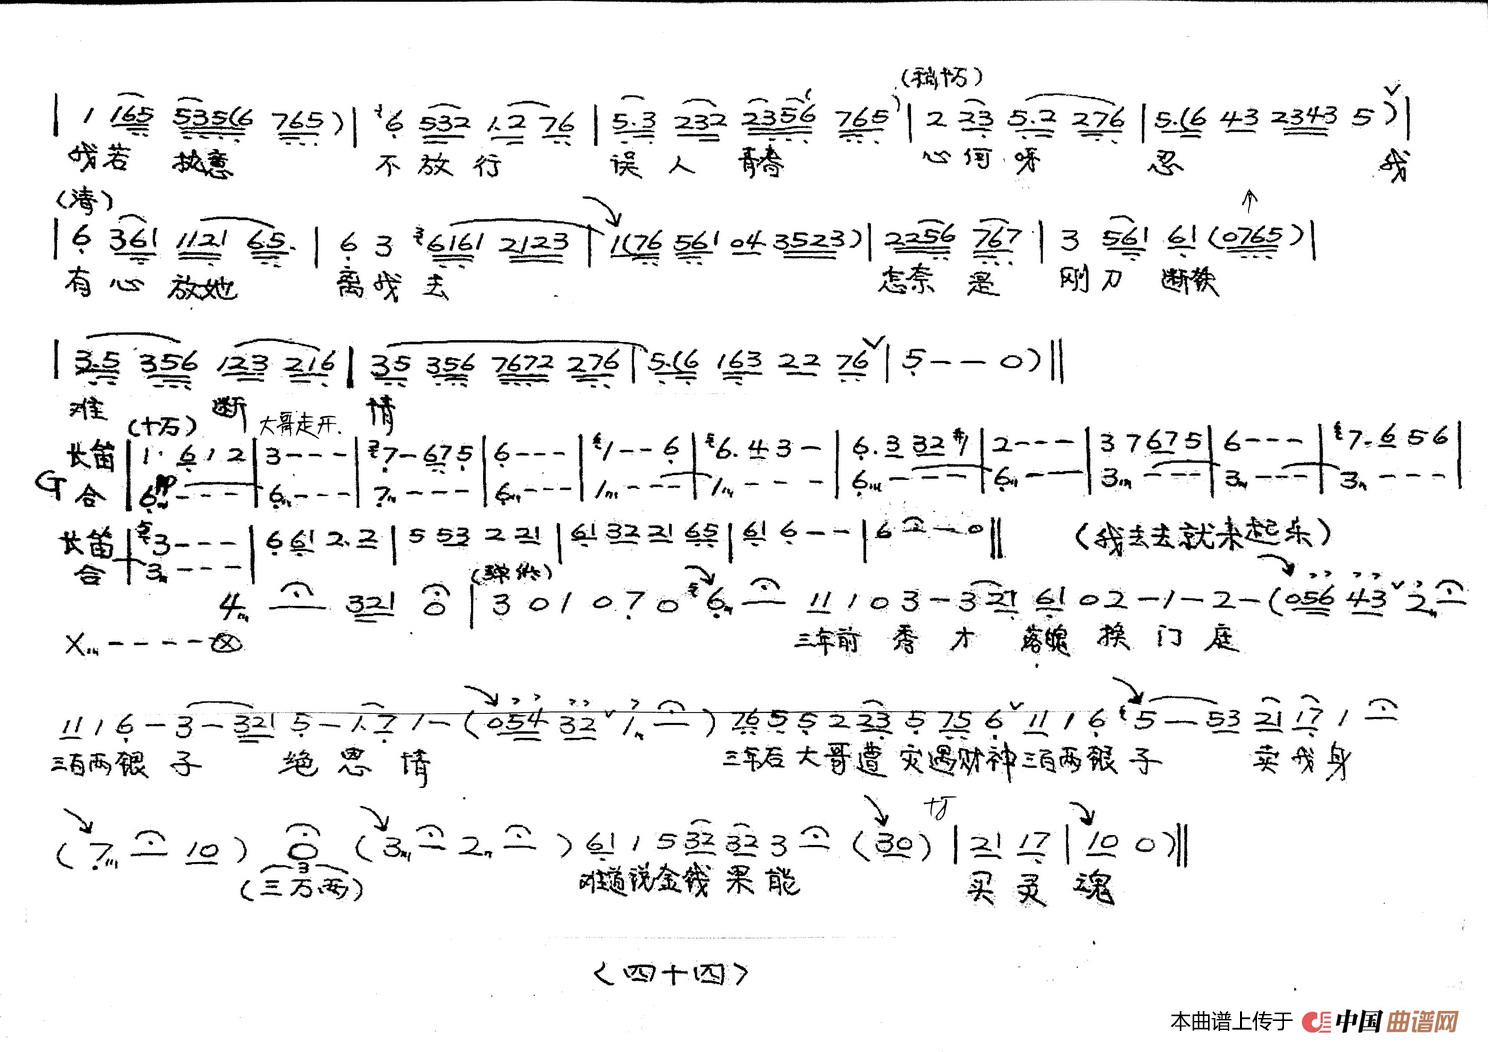 (稍十万)
| 1 165 535(6 765) | 6 532 1.2 76 | 5.3 232 2356 765 | 2 23 5.2 276 | 5.(6 43 2343 5) |
我若 执意 不放行 误人青春 心何呀忍 我
(清)
| 6 361 1121 65. | 6 3 6161 2123 | 1(76 561 04 3523) | 2256 767 | 3 561 61 (0765) |
有心放她 离我去 怎奈是 刚刀断铁
| 3.5 356 123 216 | 35 356 7672 276 | 5.(6 163 22 76 | 5 - - 0) ||
难 断 情
(十万) 大哥走开.
长笛 | 1. 6 1 2 | 3 - - - | 7 - 67 5 | 6 - - - | 1 - - 6 | 6. 4 3 - | 6. 3 32 | 2 - - - | 3 7 67 5 | 6 - - - | 7. 6 5 6 |
G 合 | 6 - - - | 6 - - - | 7 - - - | 6 - - - | 1 - - - | 1 - - - | 6 - - - | 6 - - - | 3 - - - | 3 - - - | 3 - - - |
长笛 | 3 - - - | 6 61 2. 2 | 5 53 2 21 | 61 32 21 65 | 61 6 - - | 6 2 - 0 || (我去去就来起乐)
合 | 3 - - - |
4 - 321 0 | 3 0 1 0 7 0 6 - 11 1 0 3 - 3 21 61 0 2 - 1 - 2 - (056 43 2 -
X - - - - X 三年前 秀才 落魄 挨门庭
11 1 6 - 3 - 321 5 - 1.7 1 - (054 32 1 -) 76 5 5 2 23 5 75 6 11 1 6 5 - 53 21 17 1 -
三百两银子 绝恩情 三年后大哥遭灾遇财神三百两银子 卖我身
(7 - 10) 0 (3 - 2 -) 61 1 5 32 32 3 - (30) | 21 17 | 10 0) ||
(三万两) 难道说金钱果能 买灵魂
<四十四>
本曲谱上传于 中国曲谱网